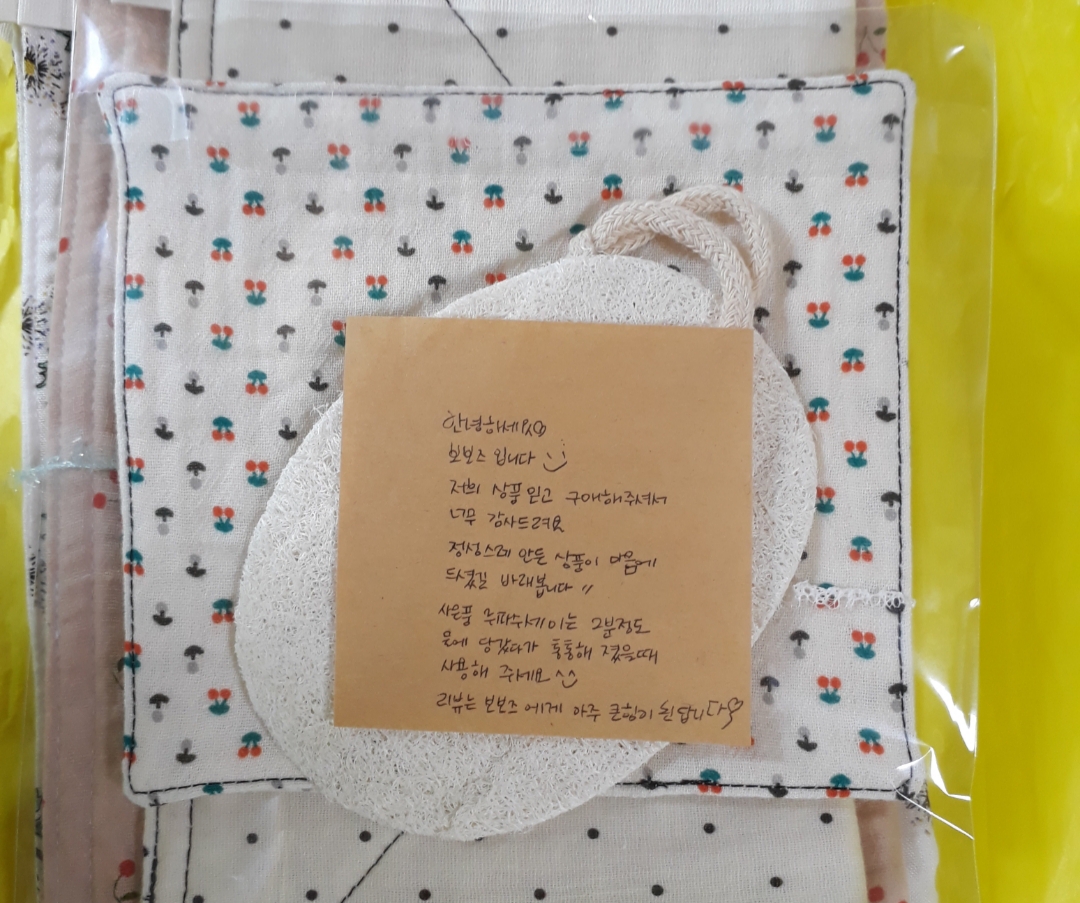 안녕하세요
보보즈 입니다
저희 상품 믿고 구매해주셔서
너무 감사드려요
정성스레 만든 상품이 마음에
드셨길 바래봅니다 //
사은품 수세미는 2분정도
물에 담갔다가 통통해 졌을때
사용해 주세요 ^^
리뷰는 보보즈 에게 아주 큰힘이 된답니다